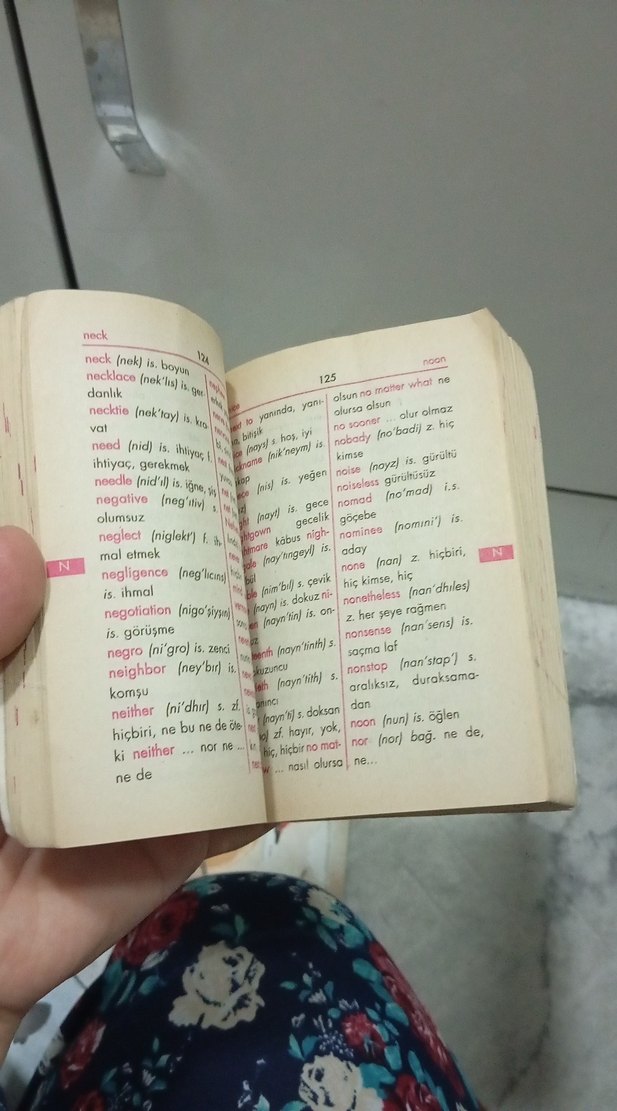 neck
124
neck (nek) is. boyun
necklace (nek'lıs) is. ger-
danlık
necktie (nek'tay) is. kra-
vat
need (nid) is. ihtiyaç, f.
ihtiyaç, gerekmek
needle (nid'ıl) is. iğne, şiş
negative (neg'ıtiv) s.
olumsuz
neglect (niglekt') f. ih-
mal etmek
negligence (neg'lıcıns)
is. ihmal
negotiation (nigo'şiyşın)
is. görüşme
negro (ni'gro) is. zenci
neighbor (ney'bır) is.
komşu
neither (ni'dhır) s. zf.
hiçbiri, ne bu ne de öte-
ki neither ... nor ne ...
ne de
N
125
noon
to yanında, yanı-
bitişik
(nays) s. hoş, iyi
(nik'neym) is.
(nis) is. yeğen
(nayt) is. gece
gecelik
kâbus nigh-
(nay'tıngeyl) is.
(nim'bıl) s. çevik
(nayn) is. dokuz ni-
(nayn'tin) is. on-
(nayn'tinth) s.
(nayn'tith) s.
(nayn'ti) s. doksan
zf. hayır, yok,
hiç, hiçbir no mat-
... nasıl olursa
olsun no matter what ne
olursa olsun
no sooner ... olur olmaz
nobady (no'badi) z. hiç
kimse
noise (nayz) is. gürültü
noiseless gürültüsüz
nomad (no'mad) i.s.
göçebe
nominee (nomıni') is.
aday
none (nan) z. hiçbiri,
hiç kimse, hiç
nonetheless (nan'dhıles)
z. her şeye rağmen
nonsense (nan'sens) is.
saçma laf
nonstop (nan'stap') s.
aralıksız, duraksama-
dan
noon (nun) is. öğlen
nor (nor) bağ. ne de,
ne...
N